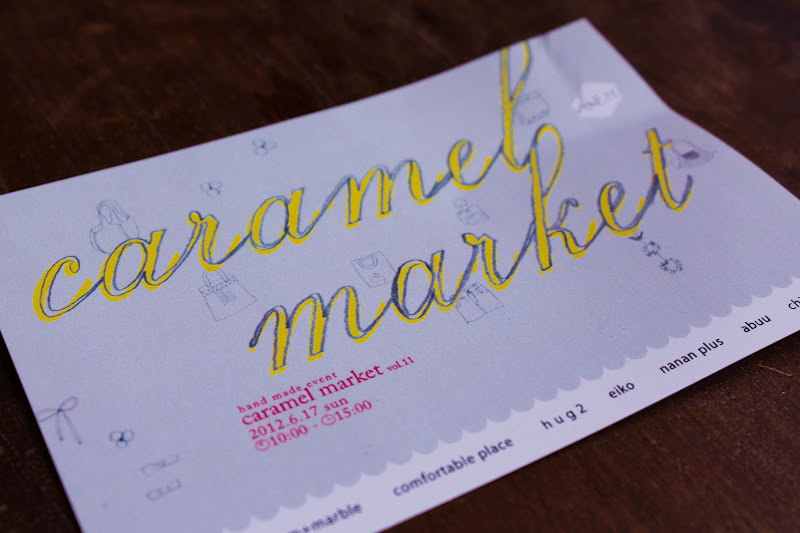 vol.11
caramel
market
hand made event
caramel market vol.11
2012.6.17 sun
10:00 - 15:00
comfortable place hug2 eiko nanan plus abuu